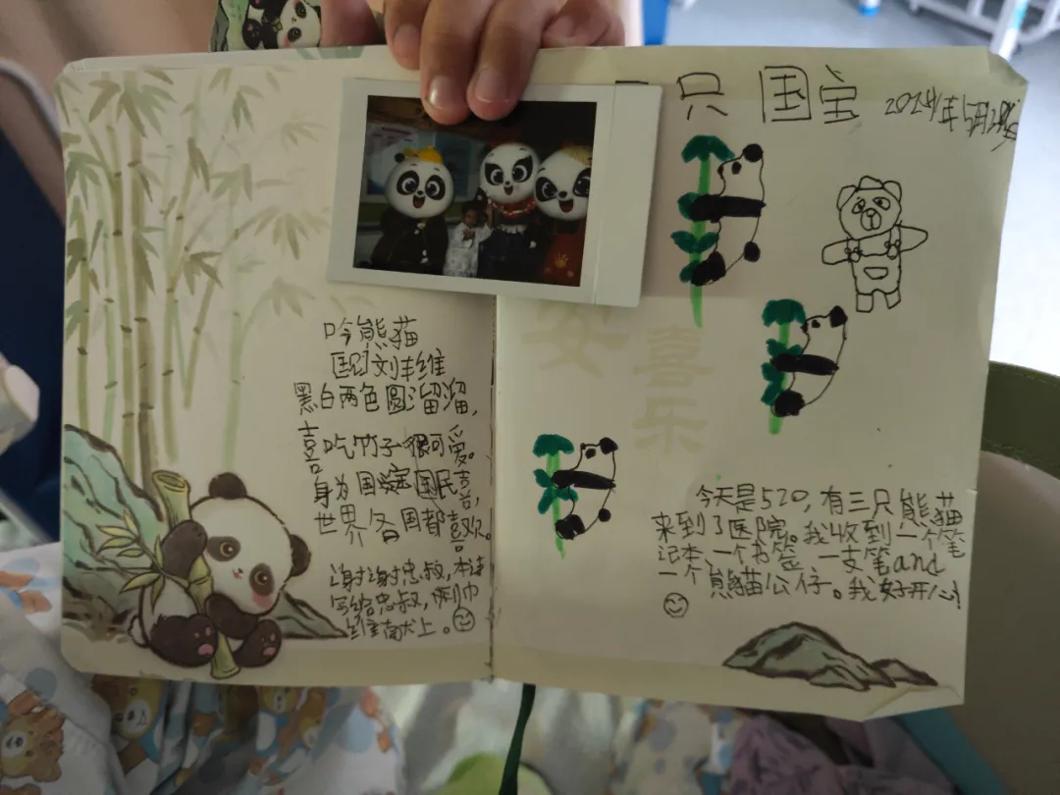 吟熊猫
刘丰维
黑白两色圆溜溜，
喜吃竹子很可爱。
身为国宝国民喜，
世界各国都喜欢。
谢谢忠叔，本诗
写给忠叔，
献上。
一只国宝
2024年5月
安
喜
乐
今天是520，有三只熊猫
来到了医院。我收到一个笔
记本、一个书签、一支笔and
一个熊猫公仔。我好开心！